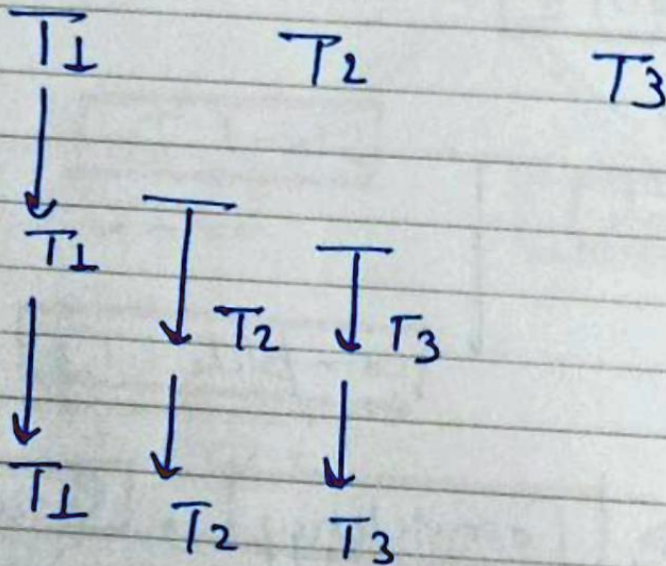 T1 T2 T3
T1
T2 T3
T1 T2 T3